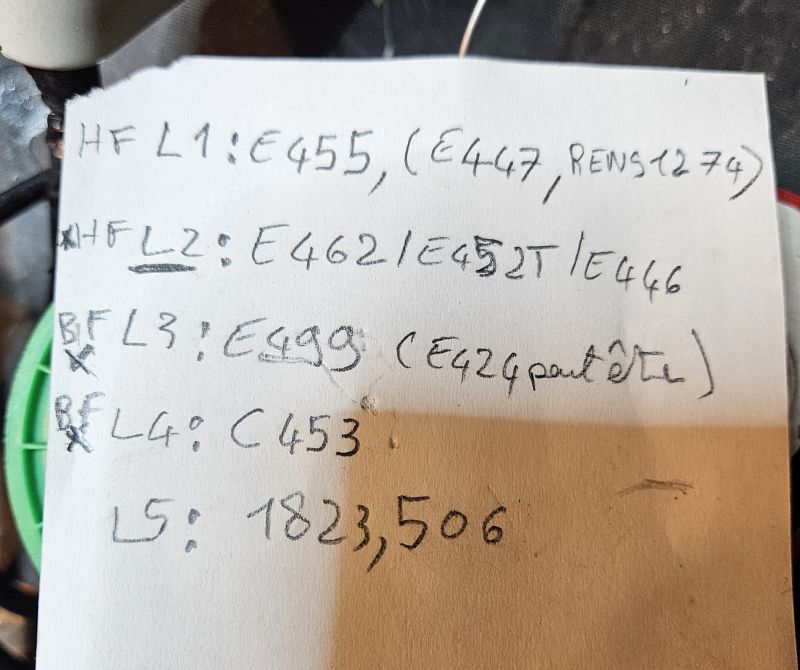 HF L1 : E455, (E447, RENS1274)
xHF L2 : E462 / E452T / E446
BF x L3 : E499 (E424 peut être)
BF x L4 : C453
L5 : 1823,506